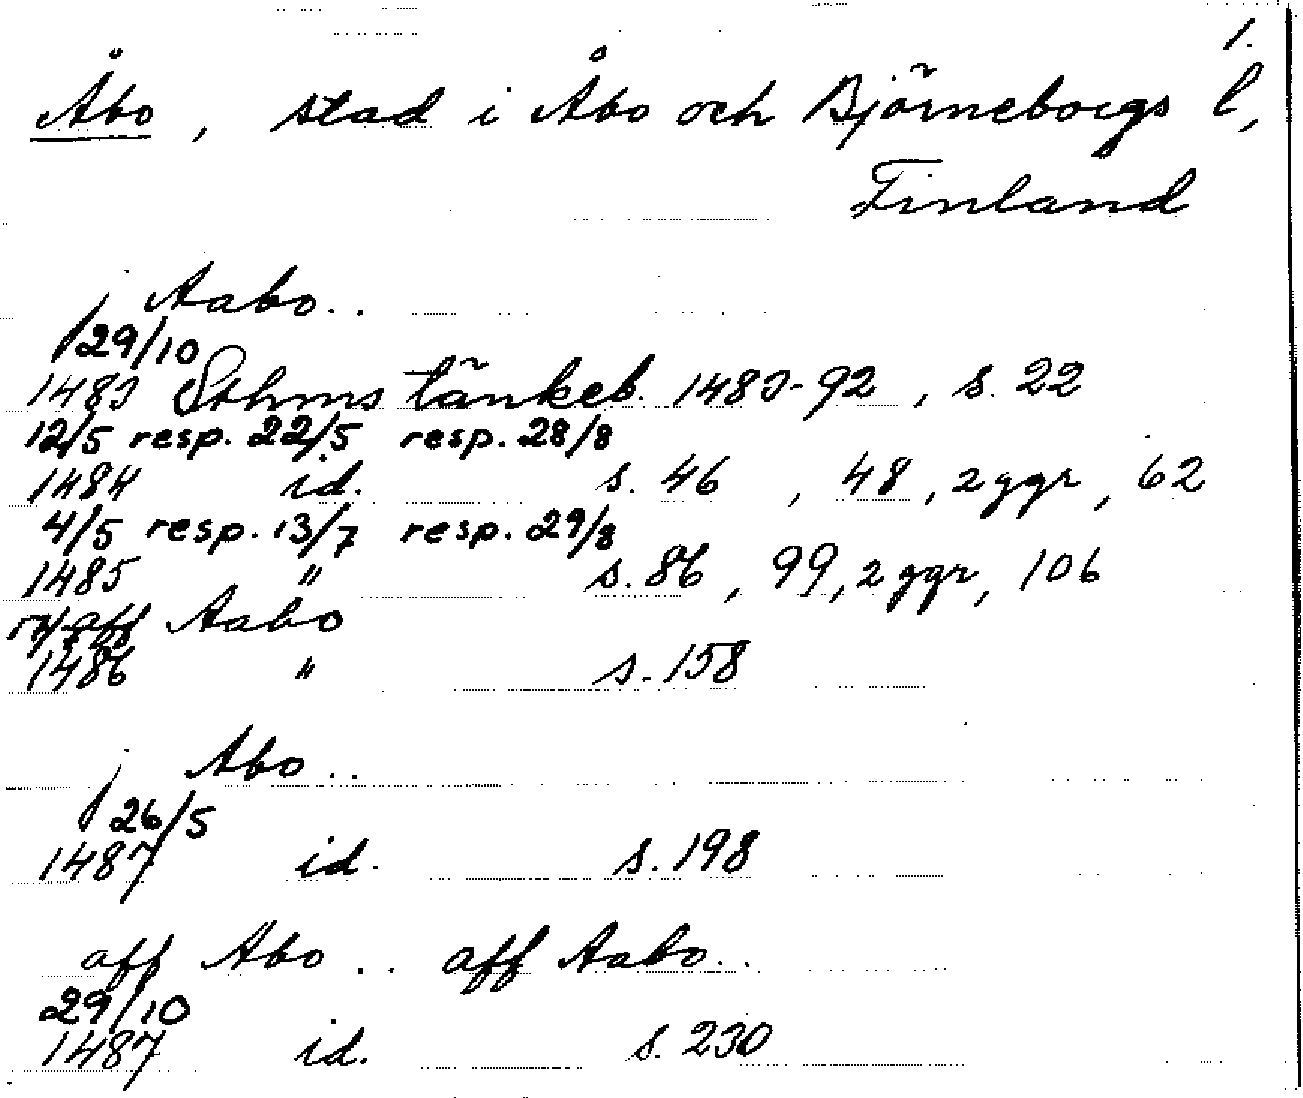 1.
Åbo, stad i Åbo och Björneborgs l,
Finland
j Aabo..
29/10
1483 Sthms tänkeb. 1483-92, s. 22
12/5 resp. 22/5 resp. 28/8
1484 id. s. 46, 48, 2 ggr, 62
4/5 resp. 13/7 resp. 29/8
1485 " s. 86, 99, 2 ggr, 106
aff Aabo
1486 " s. 158
j Åbo..
26/5
1487 id. s. 198
aff Åbo.. aff Aabo..
29/10
1487 id. s. 230